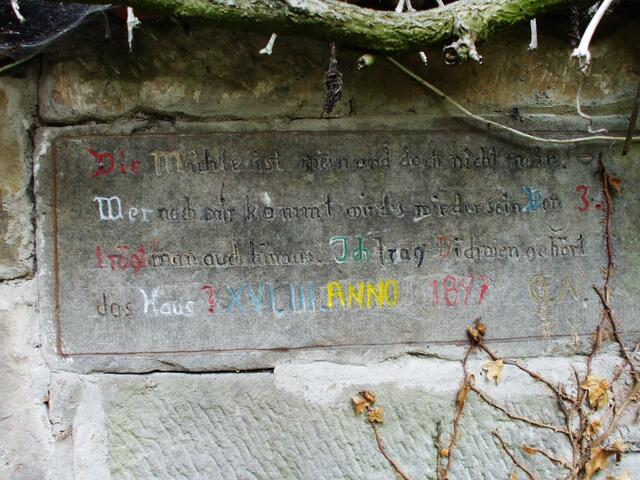 Die Mühle ist mein und doch nicht mein.
Wer nach mir kommt wirds wieder sein. Den 3.
trägt man auch hinaus. Ich frag Dich wen gehört
das Haus ? XVI.III. ANNO 1897 G.A.